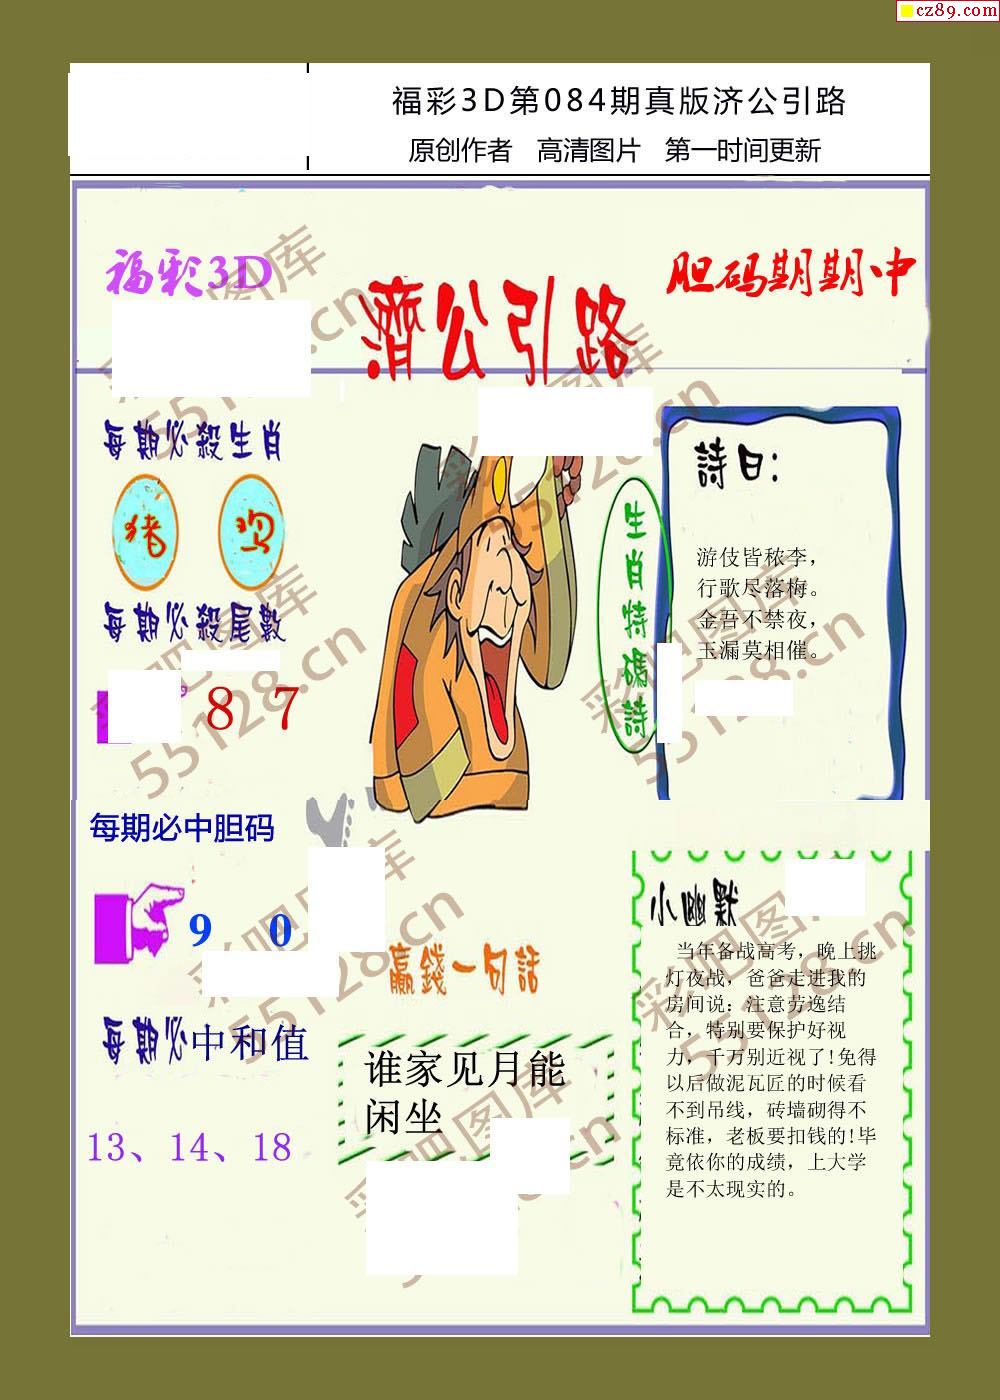 cz89.com
福彩3D第084期真版济公引路
原创作者 高清图片 第一时间更新
福彩3D
濟公引路
胆码期期中
每期必殺生肖
猪 鸡
每期必殺尾數
8 7
每期必中胆码
9 0
每期必中和值
13、14、18
生肖特碼詩
詩曰:
游伎皆秾李，
行歌尽落梅。
金吾不禁夜，
玉漏莫相催。
贏錢一句話
谁家见月能
闲坐
小幽默
当年备战高考，晚上挑
灯夜战，爸爸走进我的
房间说：注意劳逸结
合，特别要保护好视
力，千万别近视了!免得
以后做泥瓦匠的时候看
不到吊线，砖墙砌得不
标准，老板要扣钱的!毕
竟依你的成绩，上大学
是不太现实的。
彩吧图库
55128.cn